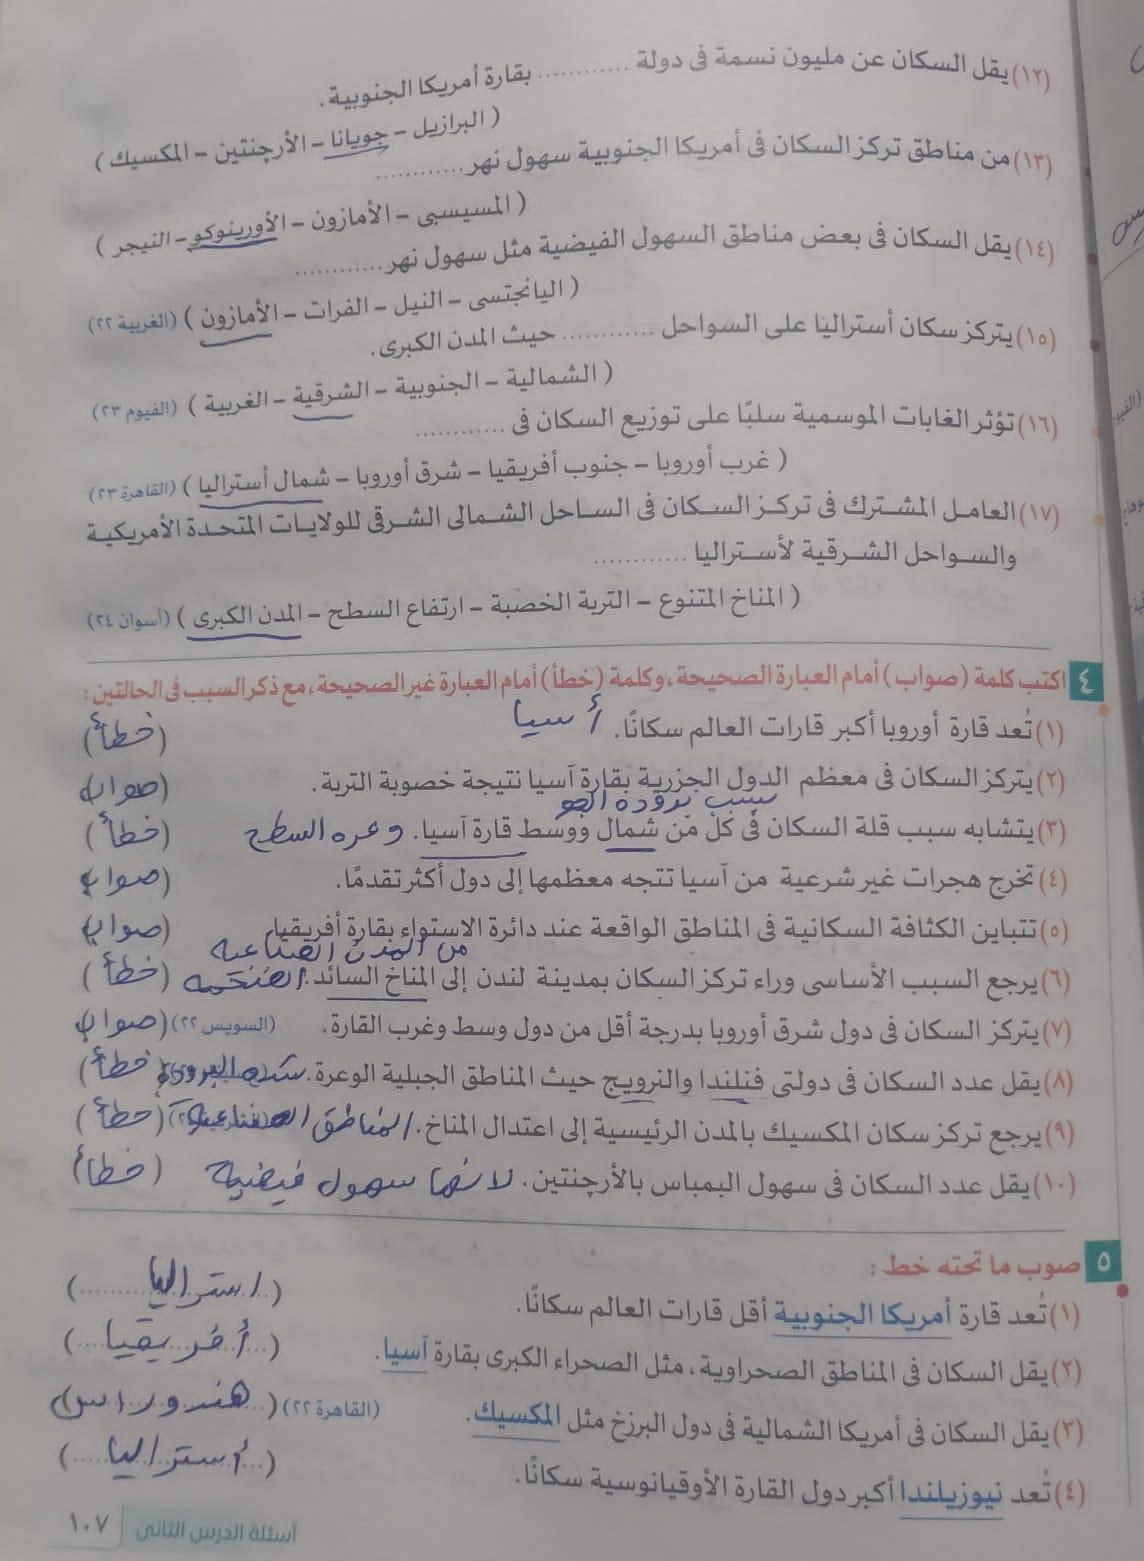 (١٢) يقل السكان عن مليون نسمة فى دولة ............ بقارة أمريكا الجنوبية.
( البرازيل - جويانا - الأرجنتين - المكسيك )
(١٣) من مناطق تركز السكان فى أمريكا الجنوبية سهول نهر ............
( المسيسبى - الأمازون - الأورينوكو - النيجر )
(١٤) يقل السكان فى بعض مناطق السهول الفيضية مثل سهول نهر ............
( اليانجتسى - النيل - الفرات - الأمازون ) (الغربية ٢٢)
(١٥) يتركز سكان أستراليا على السواحل ............ حيث المدن الكبرى.
( الشمالية - الجنوبية - الشرقية - الغربية ) (الفيوم ٢٣)
(١٦) تؤثر الغابات الموسمية سلبًا على توزيع السكان فى ............
( غرب أوروبا - جنوب أفريقيا - شرق أوروبا - شمال أستراليا ) (القاهرة ٢٣)
(١٧) العامل المشترك فى تركز السكان فى الساحل الشمالى الشرقى للولايات المتحدة الأمريكية
والسواحل الشرقية لأستراليا ............
( المناخ المتنوع - التربة الخصبة - ارتفاع السطح - المدن الكبرى ) (أسوان ٢٤)
٤ اكتب كلمة (صواب) أمام العبارة الصحيحة، وكلمة (خطأ) أمام العبارة غير الصحيحة، مع ذكر السبب فى الحالتين:
(١) تُعد قارة أوروبا أكبر قارات العالم سكانًا. أسيا (خطأ)
(٢) يتركز السكان فى معظم الدول الجزرية بقارة آسيا نتيجة خصوبة التربة. (صواب)
بسبب برودة الجو
(٣) يتشابه سبب قلة السكان فى كل من شمال ووسط قارة آسيا. وعره السطح (خطأ)
(٤) تخرج هجرات غير شرعية من آسيا تتجه معظمها إلى دول أكثر تقدمًا. (صواب)
(٥) تتباين الكثافة السكانية فى المناطق الواقعة عند دائرة الاستواء بقارة أفريقيا. (صواب)
من المدن الصناعيه
(٦) يرجع السبب الأساسى وراء تركز السكان بمدينة لندن إلى المناخ السائد. الضخمه (خطأ)
(٧) يتركز السكان فى دول شرق أوروبا بدرجة أقل من دول وسط وغرب القارة. (السويس ٢٢) (صواب)
(٨) يقل عدد السكان فى دولتى فنلندا والنرويج حيث المناطق الجبلية الوعرة. شده البروده (خطأ)
(٩) يرجع تركز سكان المكسيك بالمدن الرئيسية إلى اعتدال المناخ. المناطق الصناعية (خطأ)
(١٠) يقل عدد السكان فى سهول البمباس بالأرجنتين. لانها سهول فيضيه (خطأ)
٥ صوب ما تحته خط :
(١) تُعد قارة أمريكا الجنوبية أقل قارات العالم سكانًا. (استراليا)
(٢) يقل السكان فى المناطق الصحراوية، مثل الصحراء الكبرى بقارة آسيا. (أفريقيا)
(٣) يقل السكان فى أمريكا الشمالية فى دول البرزخ مثل المكسيك. (القاهرة ٢٢) (هندوراس)
(٤) تُعد نيوزيلندا أكبر دول القارة الأوقيانوسية سكانًا. (أستراليا)
أسئلة الدرس الثانى ١٠٧